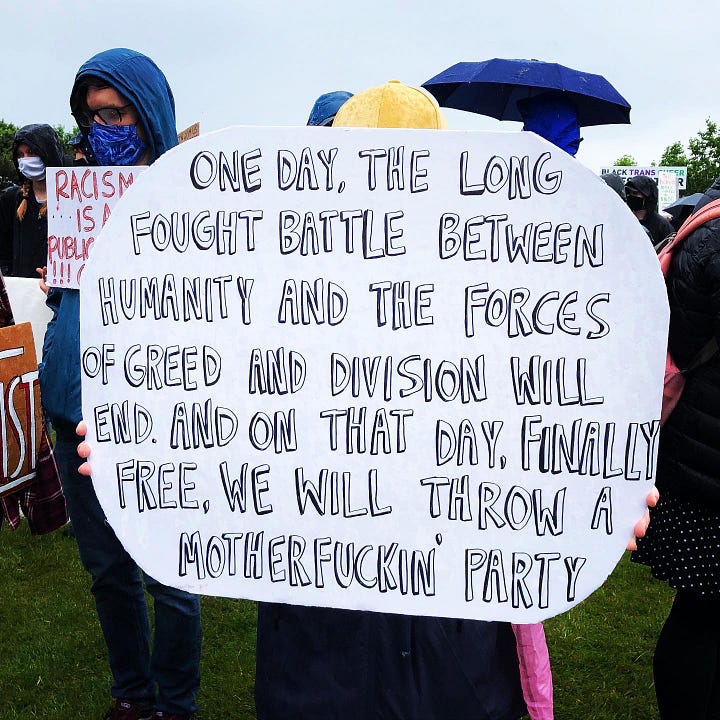 ONE DAY, THE LONG
FOUGHT BATTLE BETWEEN
HUMANITY AND THE FORCES
OF GREED AND DIVISION WILL
END. AND ON THAT DAY, FINALLY
FREE, WE WILL THROW A
MOTHERFUCKIN' PARTY
RACISM
IS A
PUBLIC
!!!
BLACK TRANS
IST